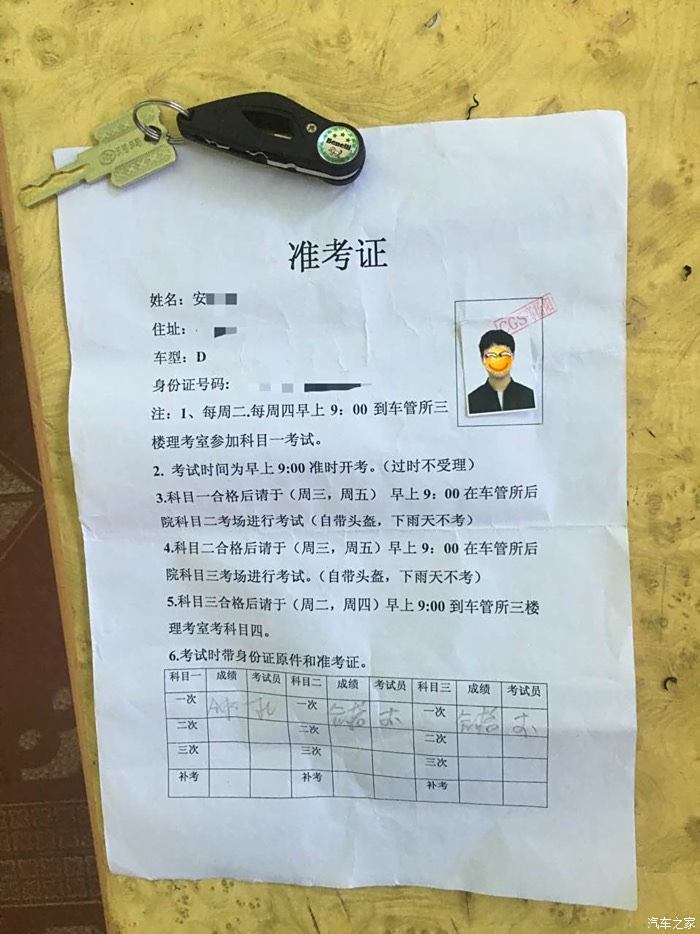 Benelli
准考证
姓名：安
住址：
车型：D
身份证号码：
CGS
注：1、每周二.每周四早上 9：00 到车管所三
楼理考室参加科目一考试。
2. 考试时间为早上 9:00 准时开考。（过时不受理）
3.科目一合格后请于（周三，周五） 早上 9：00 在车管所后
院科目二考场进行考试（自带头盔，下雨天不考）
4.科目二合格后请于（周三，周五）早上 9：00 在车管所后
院科目三考场进行考试。（自带头盔，下雨天不考）
5.科目三合格后请于（周二，周四）早上 9:00 到车管所三楼
理考室考科目四。
6.考试时带身份证原件和准考证。
科目一 成绩 考试员 科目二 成绩 考试员 科目三 成绩 考试员
一次 一次 合格 一次 合格
二次 二次 二次
三次 三次 三次
补考 补考 补考
汽车之家